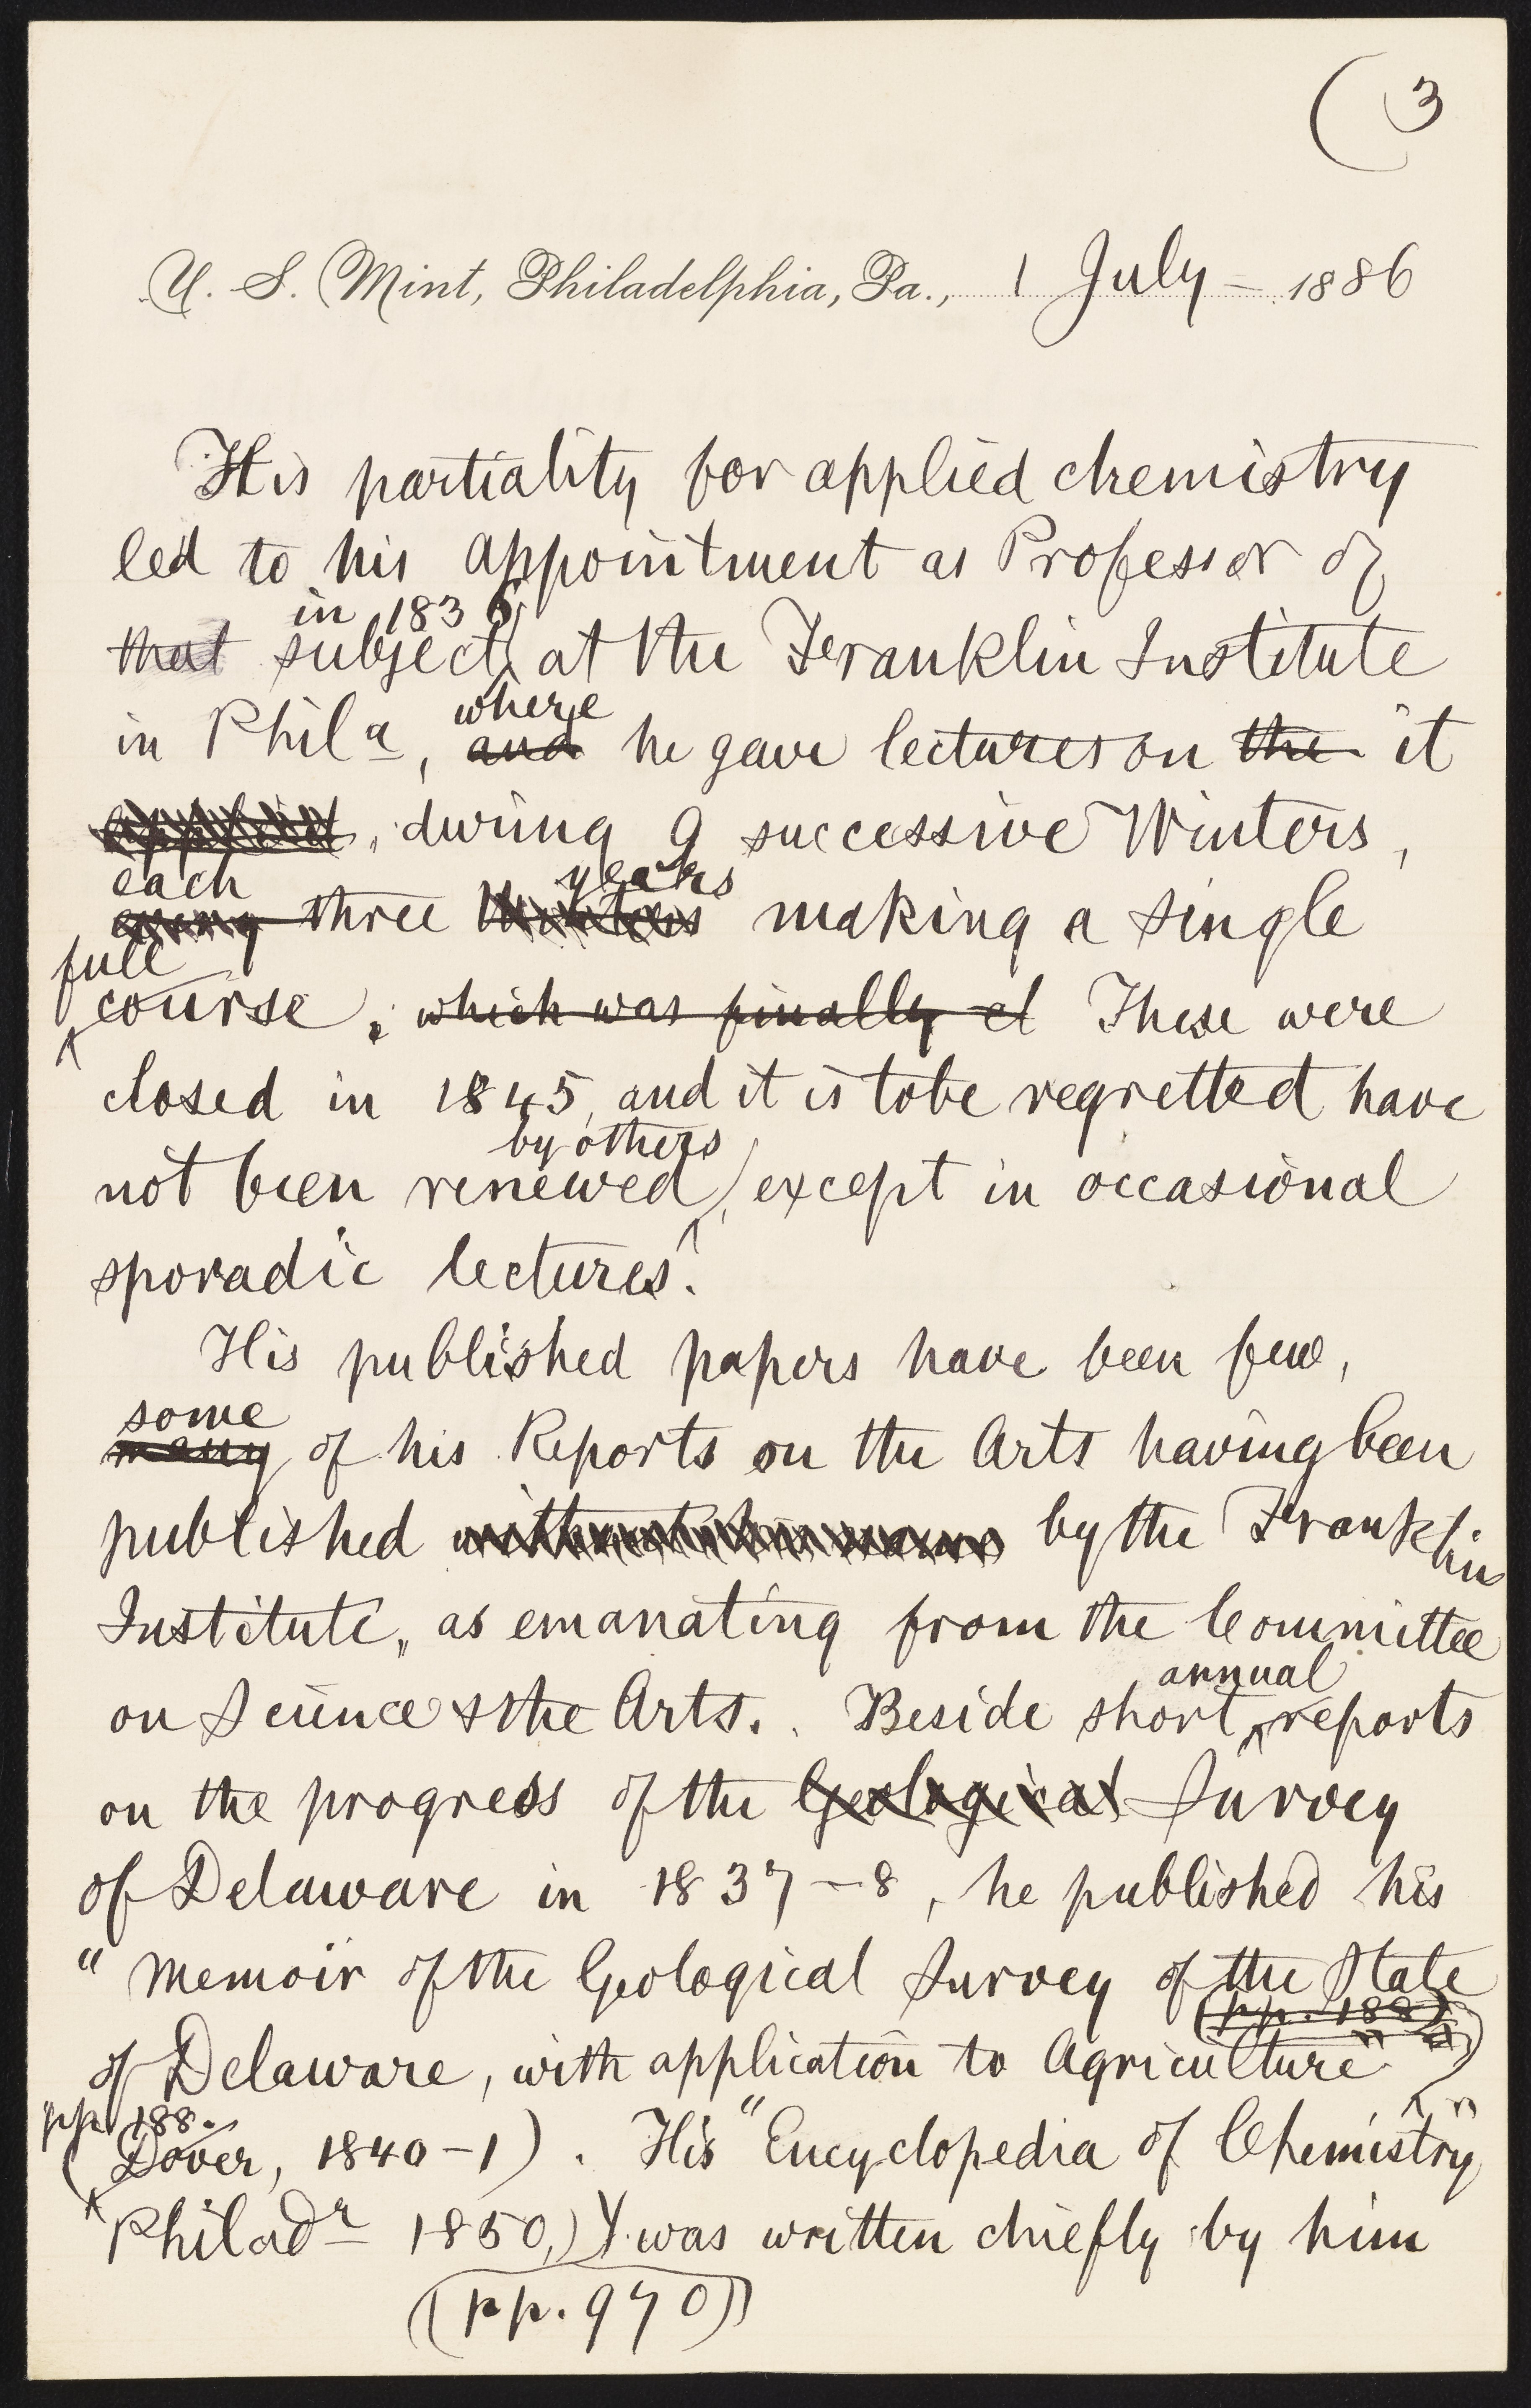 (3
U. S. Mint, Philadelphia, Pa., 1 July – 1886
His partiality for applied chemistry
led to his appointment as Professor of
in 1836
that subject, at the Franklin Institute
where
in Phila, and he gave lectures on the it
applied, during 9 successive Winters,
each years
every three Winters making a single
full
course. which was finally cl These were
closed in 1845, and it is to be regretted have
by others
not been renewed, except in occasional
sporadic lectures.
His published papers have been few,
some
many of his Reports on the Arts having been
published without his name by the Franklin
Institute, as emanating from the Committee
annual
on Science & the Arts. Beside short reports
on the progress of the Geological Survey
of Delaware in 1837–8, he published his
"Memoir of the Geological Survey of the State
(pp. 188)
of Delaware, with application to Agriculture"
pp. 188.
(Dover, 1840–1). His "Encyclopedia of Chemistry"
Philadr 1850,) was written chiefly by him
(pp. 970)